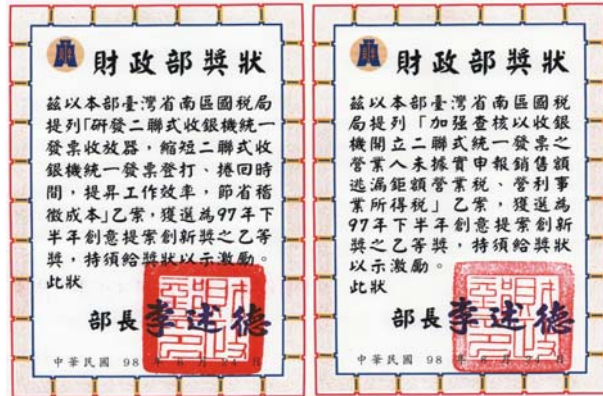 財政部獎狀
茲以本部臺灣省南區國稅局
提列「研發二聯式收銀機統一
發票收放器，縮短二聯式收
銀機統一發票登打、捲回時
間，提昇工作效率，節省稽
徵成本」乙案，獲選為97年下
半年創意提案創新獎之乙等
獎，特頒給獎狀以示激勵。
此狀
部長李述德
中華民國 98 年 8 月 24 日
財政部獎狀
茲以本部臺灣省南區國稅
局提列「加强查核以收銀
機開立二聯式統一發票之
營業人未據實申報銷售額
逃漏鉅額營業稅、營利事
業所得稅」乙案，獲選為
97年下半年創意提案創新
獎之乙等獎，特頒給獎狀
以示激勵。
此狀
部長李述德
中華民國 98 年 8 月 24 日